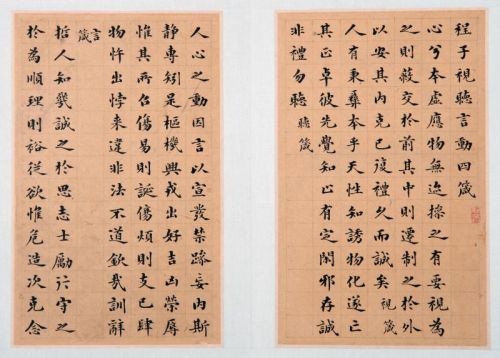 程子視聽言動四箴
心兮本虛應物無迹操之有要視為
之則蔽交於前其中則遷制之於外
以安其內克己復禮久而誠矣視箴
人有秉彝本乎天性知誘物化遂亡
其正卓彼先覺知止有定閑邪存誠
非禮勿聽聽箴
人心之動因言以宣發禁躁妄內斯
靜專矧是樞機興戎出好吉凶榮辱
惟其所召傷易則誕傷煩則支己肆
物忤出悖來違非法不道欽哉訓辭
言箴
哲人知幾誠之於思志士勵行守之
於為順理則裕從欲惟危造次克念